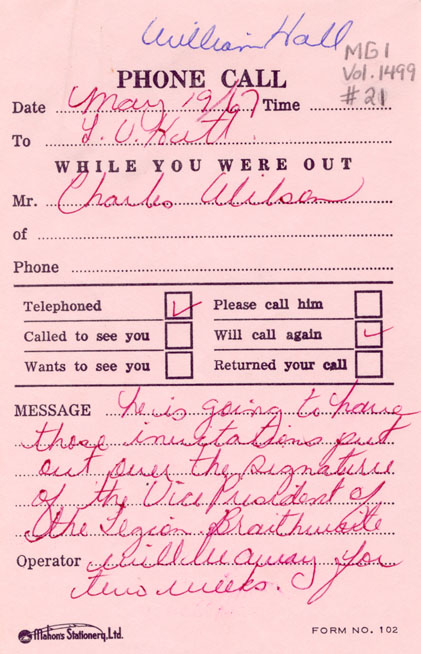 William Hall
MG1
Vol. 1499
#21
PHONE CALL
Date May 19/67 Time
To
WHILE YOU WERE OUT
Mr. Charles Wilson
of
Phone
Telephoned ✓ Please call him
Called to see you Will call again ✓
Wants to see you Returned your call
MESSAGE he is going to have
those invitations put
out over the signature
of the Vice President of
the Legion Braithwaite
Operator will be away for
two weeks.
Mahon's Stationery, Ltd.
FORM NO. 102